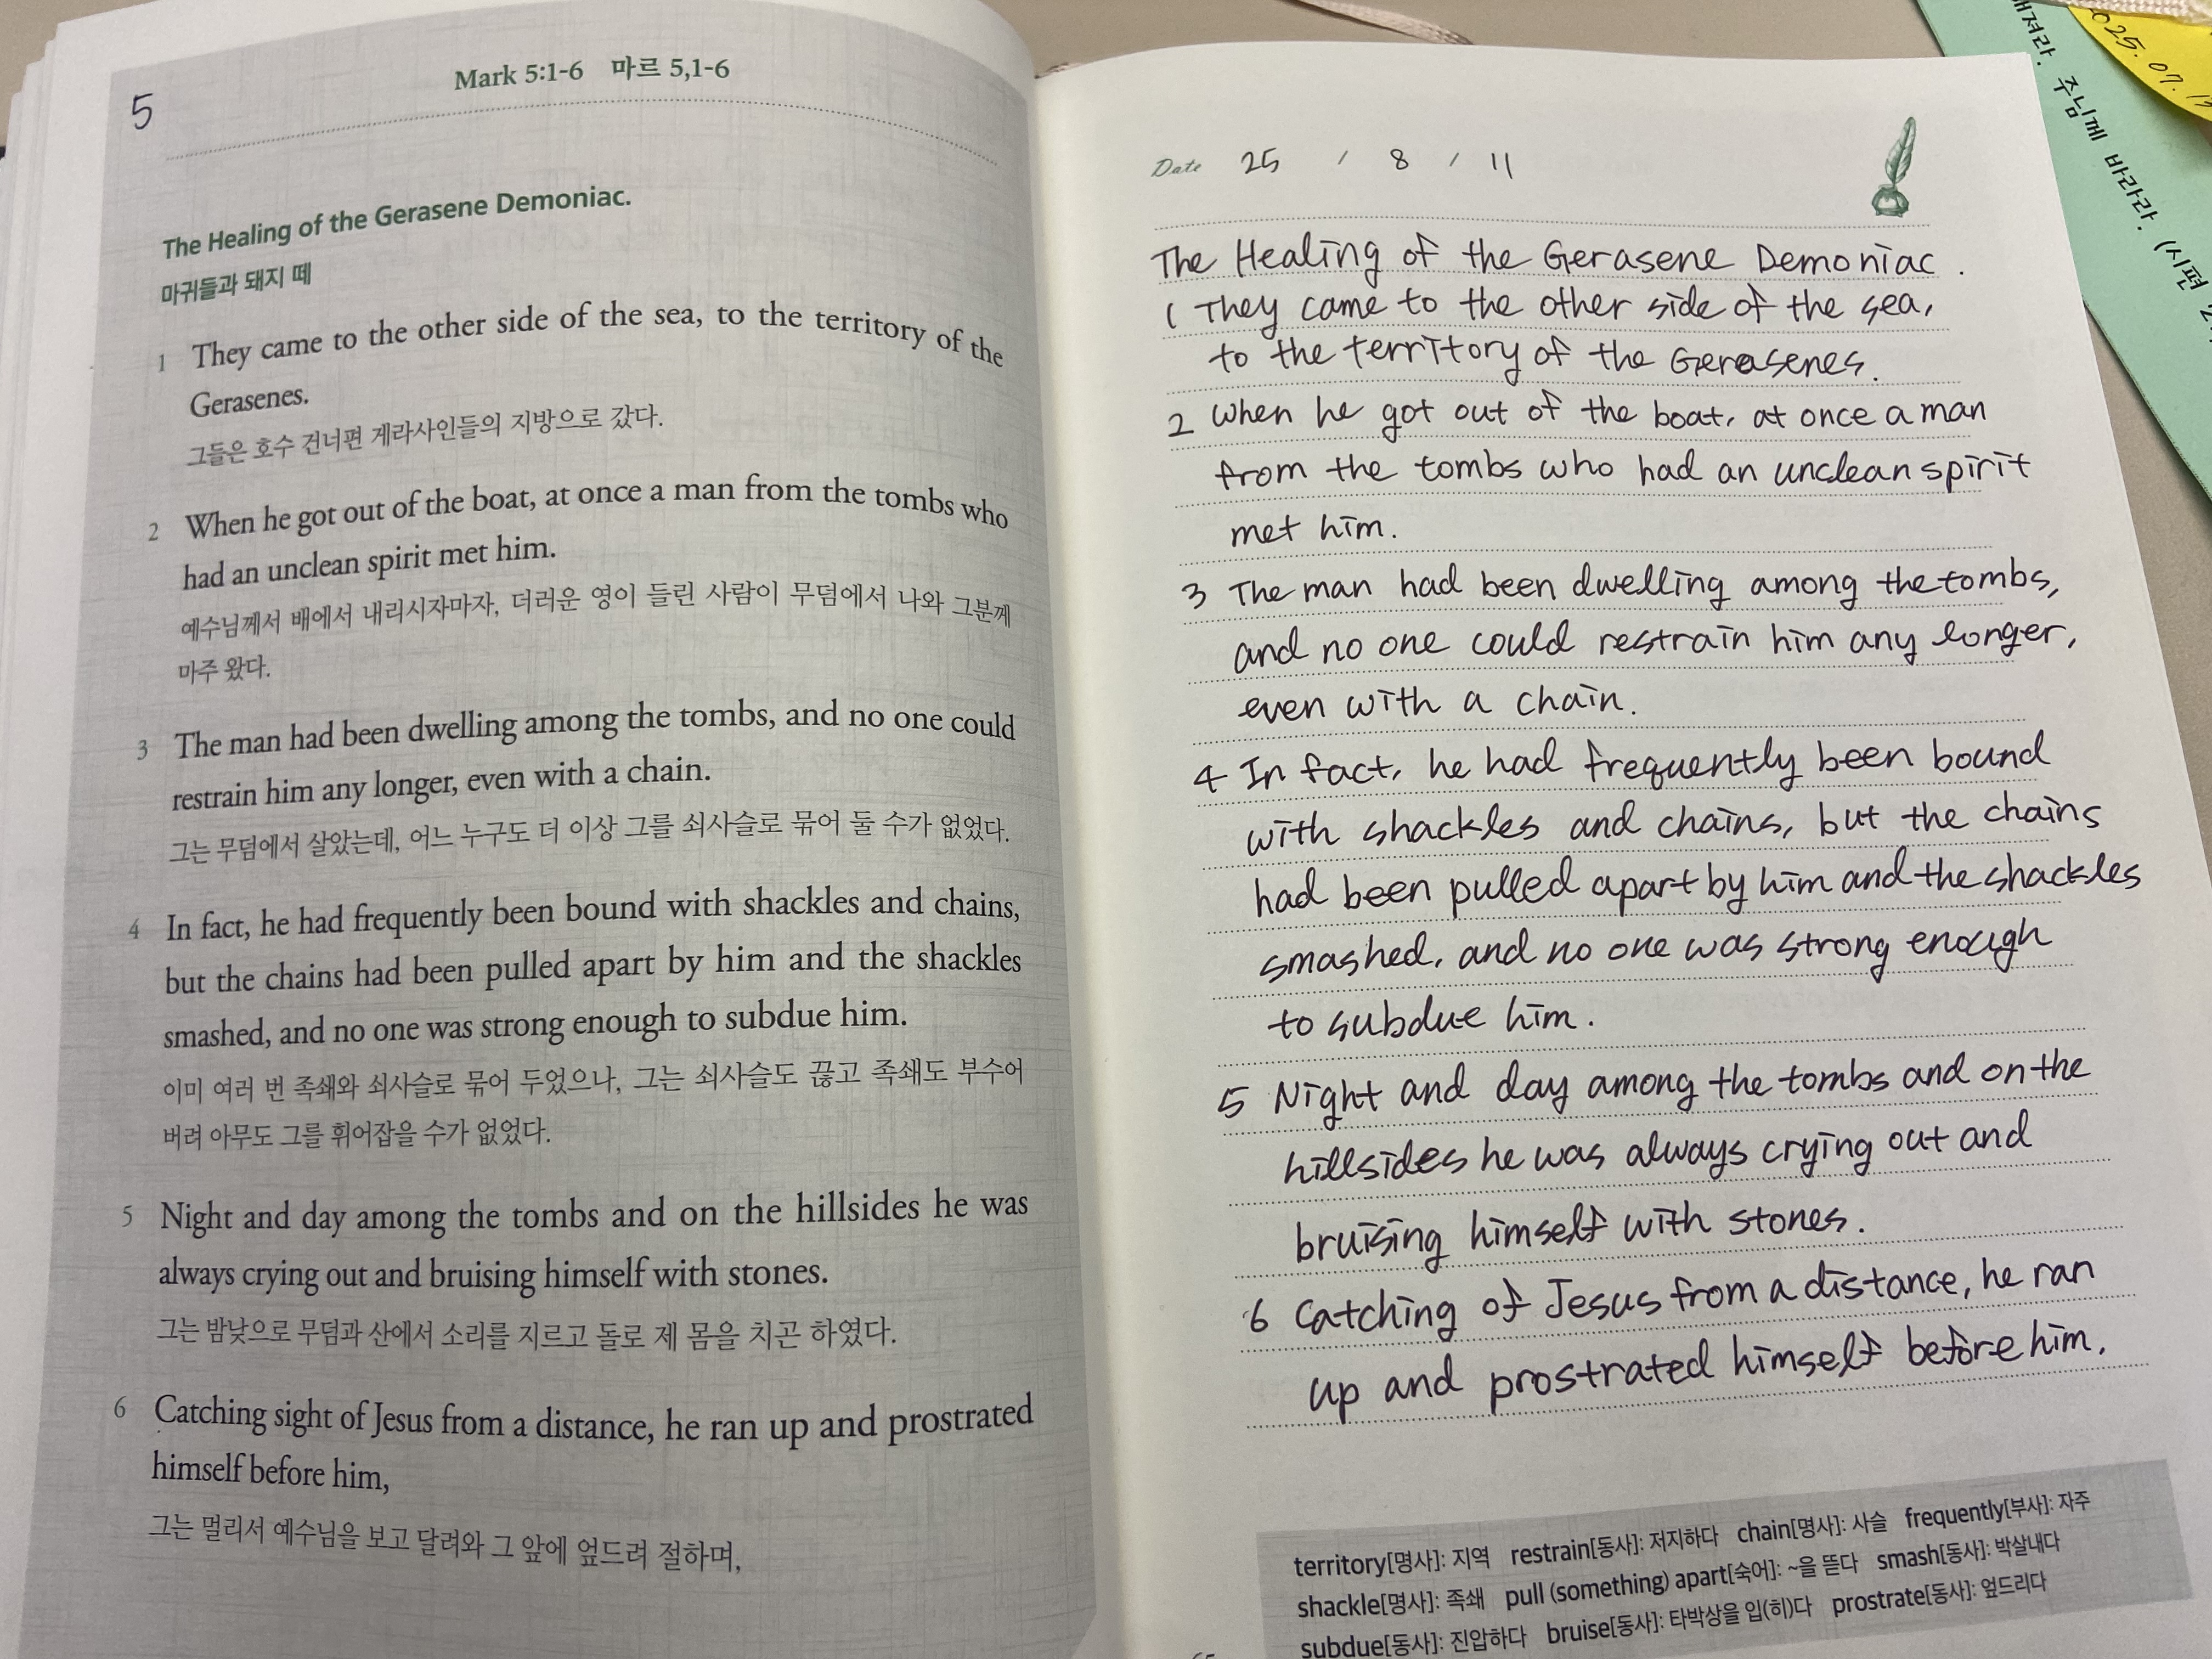 5
Mark 5:1-6 마르 5,1-6
The Healing of the Gerasene Demoniac.
마귀들과 돼지 떼
1 They came to the other side of the sea, to the territory of the
Gerasenes.
그들은 호수 건너편 게라사인들의 지방으로 갔다.
2 When he got out of the boat, at once a man from the tombs who
had an unclean spirit met him.
예수님께서 배에서 내리시자마자, 더러운 영이 들린 사람이 무덤에서 나와 그분께
마주 왔다.
3 The man had been dwelling among the tombs, and no one could
restrain him any longer, even with a chain.
그는 무덤에서 살았는데, 어느 누구도 더 이상 그를 쇠사슬로 묶어 둘 수가 없었다.
4 In fact, he had frequently been bound with shackles and chains,
but the chains had been pulled apart by him and the shackles
smashed, and no one was strong enough to subdue him.
이미 여러 번 족쇄와 쇠사슬로 묶어 두었으나, 그는 쇠사슬도 끊고 족쇄도 부수어
버려 아무도 그를 휘어잡을 수가 없었다.
5 Night and day among the tombs and on the hillsides he was
always crying out and bruising himself with stones.
그는 밤낮으로 무덤과 산에서 소리를 지르고 돌로 제 몸을 치곤 하였다.
6 Catching sight of Jesus from a distance, he ran up and prostrated
himself before him,
그는 멀리서 예수님을 보고 달려와 그 앞에 엎드려 절하며,
Date 25 / 8 / 11
The Healing of the Gerasene Demoniac.
1 They came to the other side of the sea,
to the territory of the Gerasenes.
2 When he got out of the boat, at once a man
from the tombs who had an unclean spirit
met him.
3 The man had been dwelling among the tombs,
and no one could restrain him any longer,
even with a chain.
4 In fact, he had frequently been bound
with shackles and chains, but the chains
had been pulled apart by him and the shackles
smashed, and no one was strong enough
to subdue him.
5 Night and day among the tombs and on the
hillsides he was always crying out and
bruising himself with stones.
6 Catching of Jesus from a distance, he ran
up and prostrated himself before him.
territory[명사]: 지역 restrain[동사]: 저지하다 chain[명사]: 사슬 frequently[부사]: 자주
shackle[명사]: 족쇄 pull (something) apart[숙어]: ~을 뜯다 smash[동사]: 박살내다
subdue[동사]: 진압하다 bruise[동사]: 타박상을 입(히)다 prostrate[동사]: 엎드리다
주님께 바라라. (시편
025. 07.